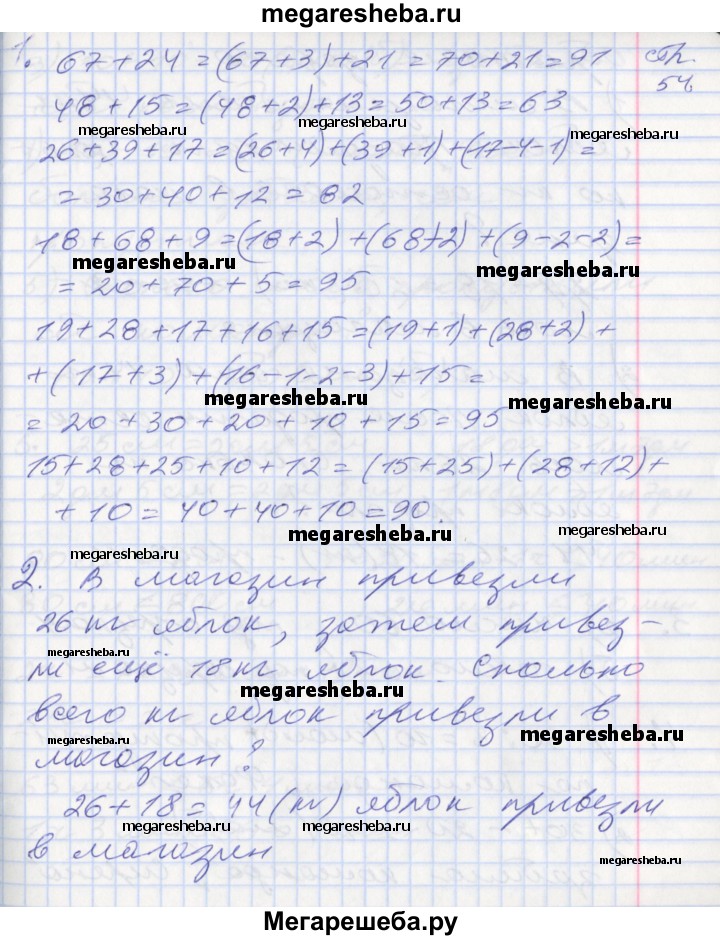 megaresheba.ru
1. 67+24=(67+3)+21=70+21=91 стр. 54
48+15=(48+2)+13=50+13=63
megaresheba.ru megaresheba.ru
26+39+17=(26+4)+(39+1)+(17-4-1)=
=30+40+12=82
18+68+9=(18+2)+(68+2)+(9-2-2)=
megaresheba.ru megaresheba.ru
=20+70+5=95
19+28+17+16+15=(19+1)+(28+2)+
+(17+3)+(16-1-2-3)+15=
megaresheba.ru megaresheba.ru
=20+30+20+10+15=95
15+28+25+10+12=(15+25)+(28+12)+
+10=40+40+10=90.
megaresheba.ru megaresheba.ru
megaresheba.ru
2. В магазин привезли
26 кг яблок, затем привез-
ли ещё 18 кг яблок. Сколько
megaresheba.ru megaresheba.ru
всего кг яблок привезли в
megaresheba.ru megaresheba.ru
магазин?
26+18=44(кг) яблок привезли
megaresheba.ru megaresheba.ru
в магазин
megaresheba.ru
Мегарешеба.ру